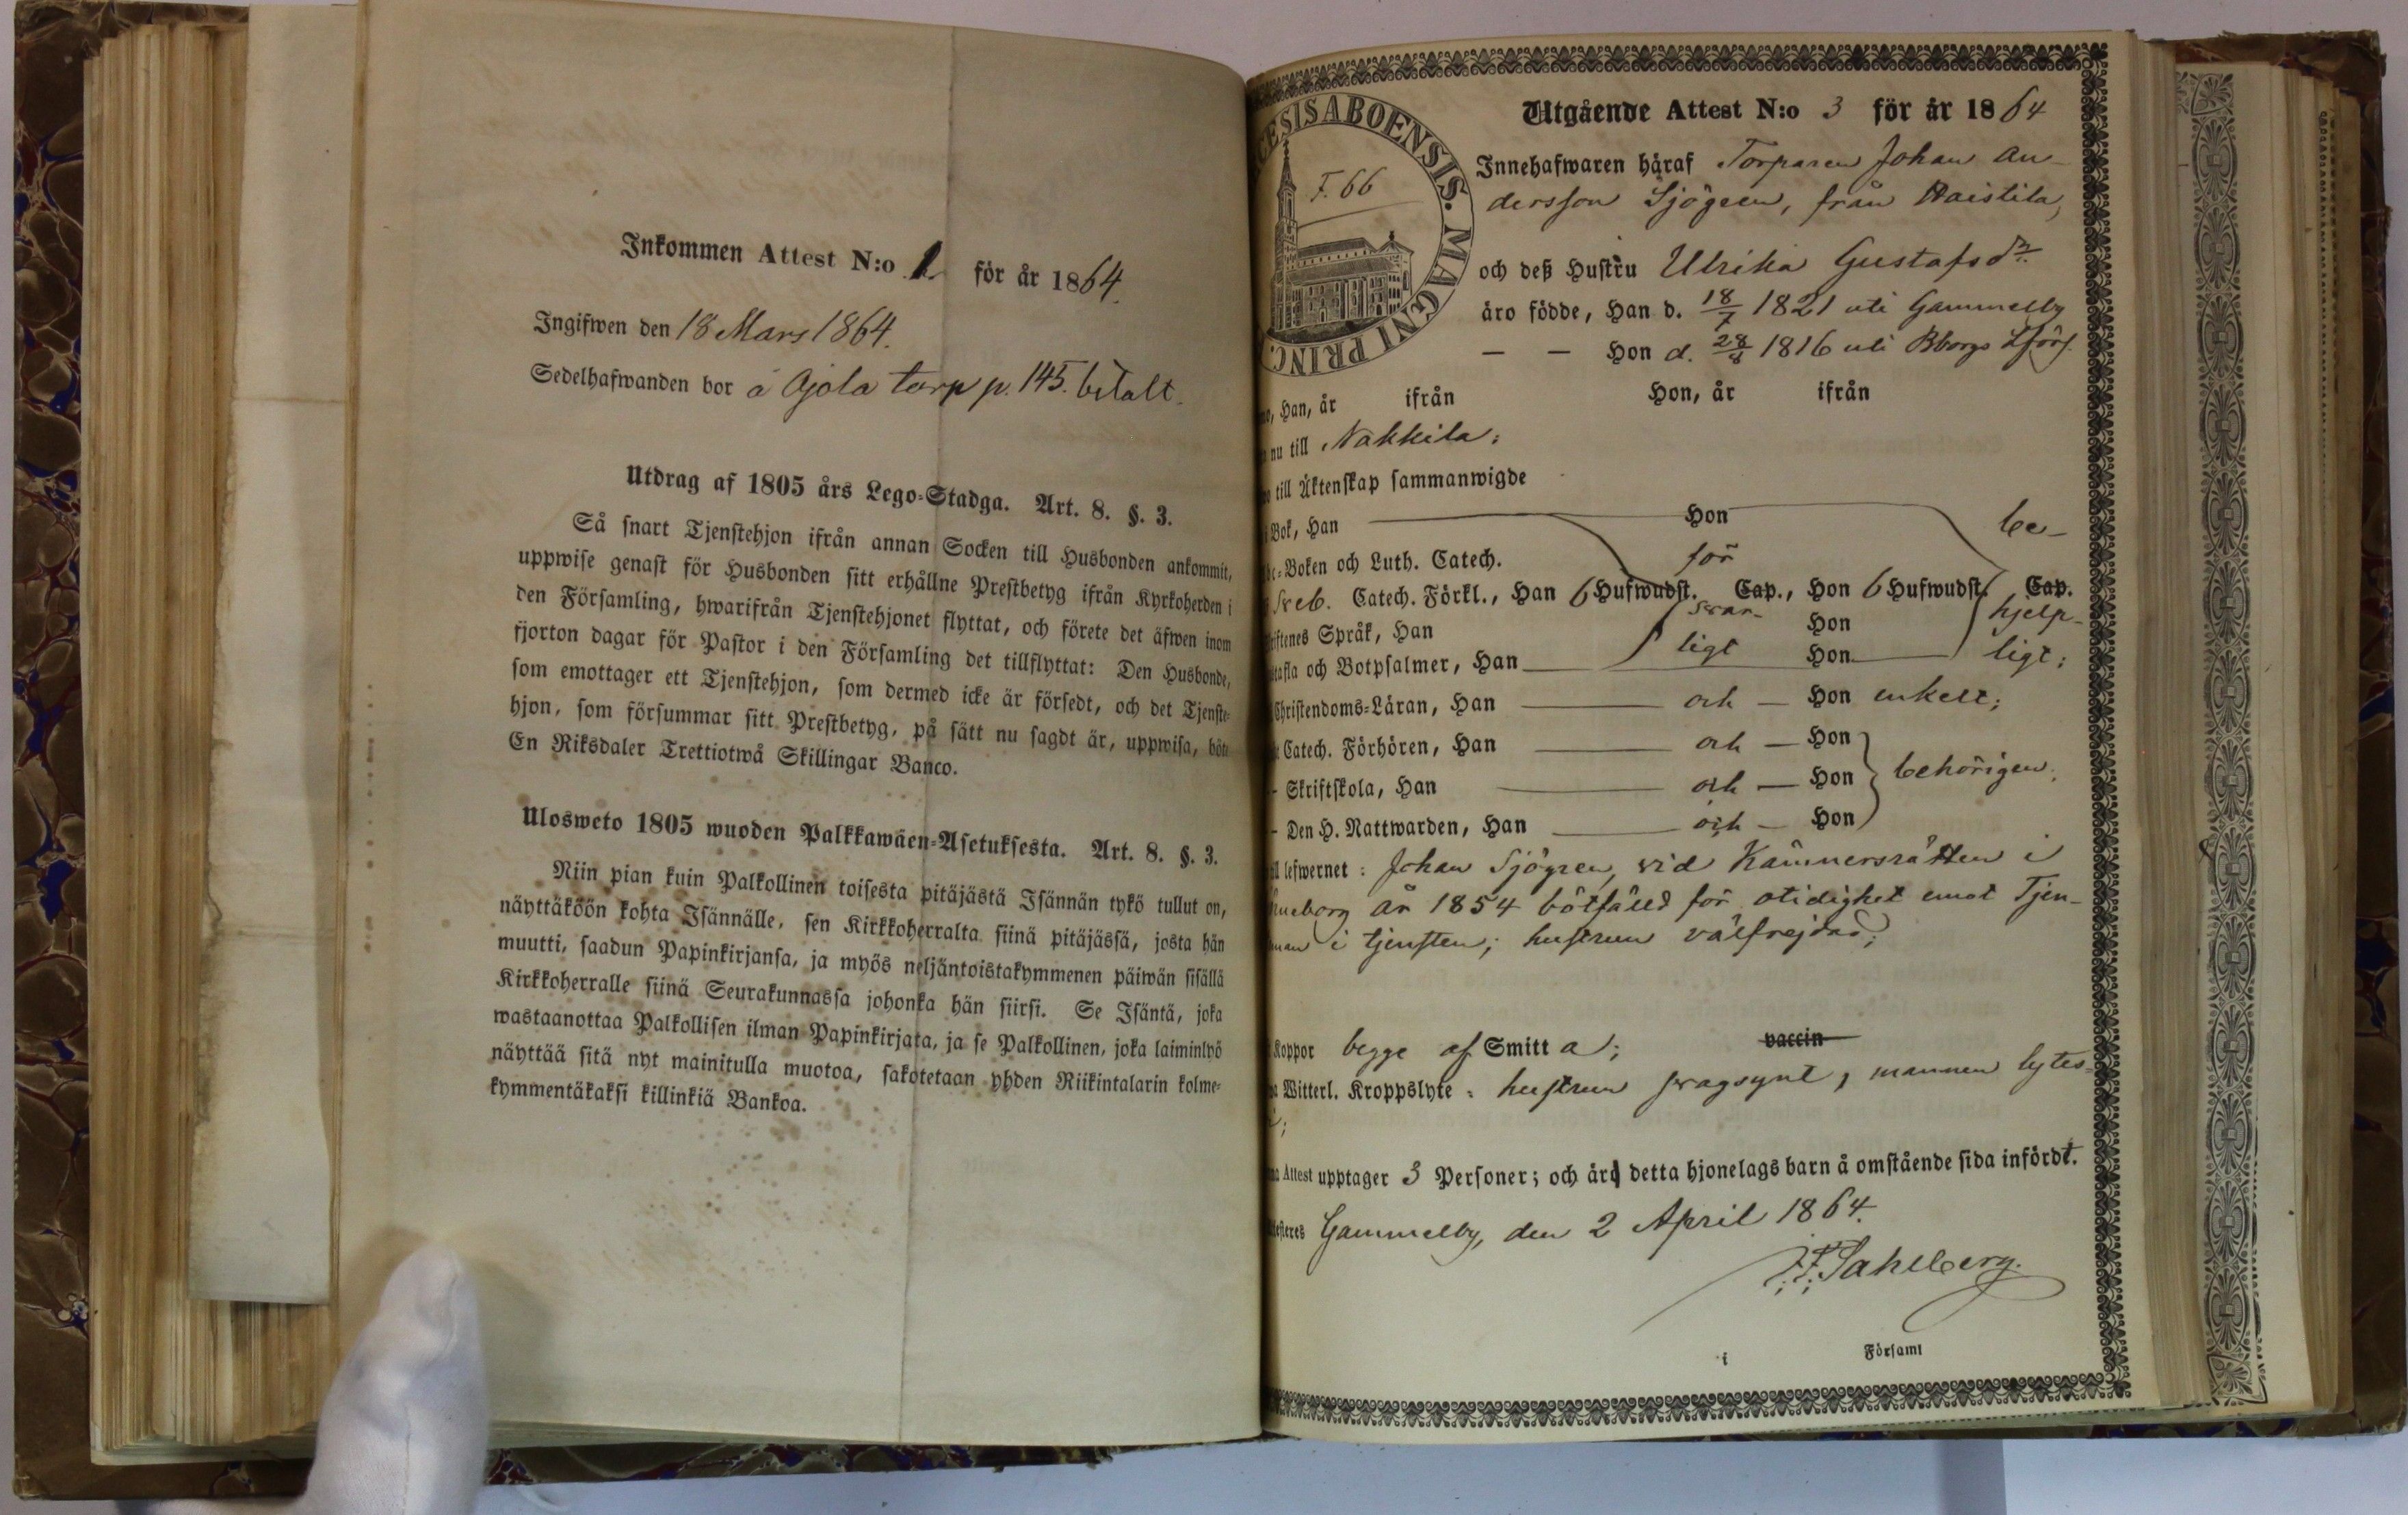 Inkommen Attest N:o 1 för år 1864.
Ingifwen den 18 Mars 1864.
Sedelhafwanden bor å Ojola torp p. 145. betalt.
Utdrag af 1805 års Lego-Stadga. Art. 8. §. 3.
Så snart Tjenstehjon ifrån annan Socken till Husbonden ankommit,
uppwise genast för Husbonden sitt erhållne Prestbetyg ifrån Kyrkoherden i
den Församling, hwarifrån Tjenstehjonet flyttat, och förete det äfwen inom
fjorton dagar för Pastor i den Församling det tillflyttat: Den Husbonde,
som emottager ett Tjenstehjon, som dermed icke är försedt, och det Tjenste-
hjon, som försummar sitt Prestbetyg, på sätt nu sagdt är, uppwisa, böte
En Riksdaler Trettiotwå Skillingar Banco.
Ulosweto 1805 wuoden Palkkawäen-Asetuksesta. Art. 8. §. 3.
Niin pian kuin Palkollinen toisesta pitäjästä Isännän tykö tullut on,
näyttäköön kohta Isännälle, sen Kirkkoherralta siinä pitäjässä, josta hän
muutti, saadun Papinkirjansa, ja myös neljäntoistakymmenen päiwän sisällä
Kirkkoherralle siinä Seurakunnassa johonka hän siirsi. Se Isäntä, joka
wastaanottaa Palkollisen ilman Papinkirjata, ja se Palkollinen, joka laiminlyö
näyttää sitä nyt mainitulla muotoa, sakotetaan yhden Riikintalarin kolme-
kymmentäkaksi killinkiä Bankoa.
ESIS ABOENSIS. MAGNI PRINC.
F. 66
Utgående Attest N:o 3 för år 1864
Innehafwaren häraf Torparen Johan An-
dersson Sjögren, från Haistila,
och deß Hustru Ulrika Gustafsdr.
äro födde, Han d. 18/7 1821 uti Gammelby
— — Hon d. 28/8 1816 uti Bborgs Lförs.
, Han, år ifrån Hon, år ifrån
nu till Nakkila;
till Äktenskap sammanwigde
Bok, Han Hon be-
-Boken och Luth. Catech. för
Sveb. Catech. Förkl., Han 6 Hufwudst. Cap., Hon 6 Hufwudst. Cap.
Språk, Han svar- Hon hjelp-
och Botpsalmer, Han ligt Hon ligt;
Christendoms-Läran, Han och — Hon enkelt;
Catech. Förhören, Han och — Hon
- Skriftskola, Han och — Hon behörigen;
- Den H. Nattwarden, Han och — Hon
lefwernet: Johan Sjögren, vid Kämnersrätten i
år 1854 bötfälld för otidighet emot Tjen-
i tjensten; hustrun välfrejdad;
Koppor begge af Smitta; vaccin
Witterl. Kroppslyte: hustrun svagsynt, mannen lytes-
Attest upptager 3 Personer; och äro detta hjonelags barn å omstående sida infördt.
Gammelby, den 2 April 1864.
F. Sahlberg.
i Församl